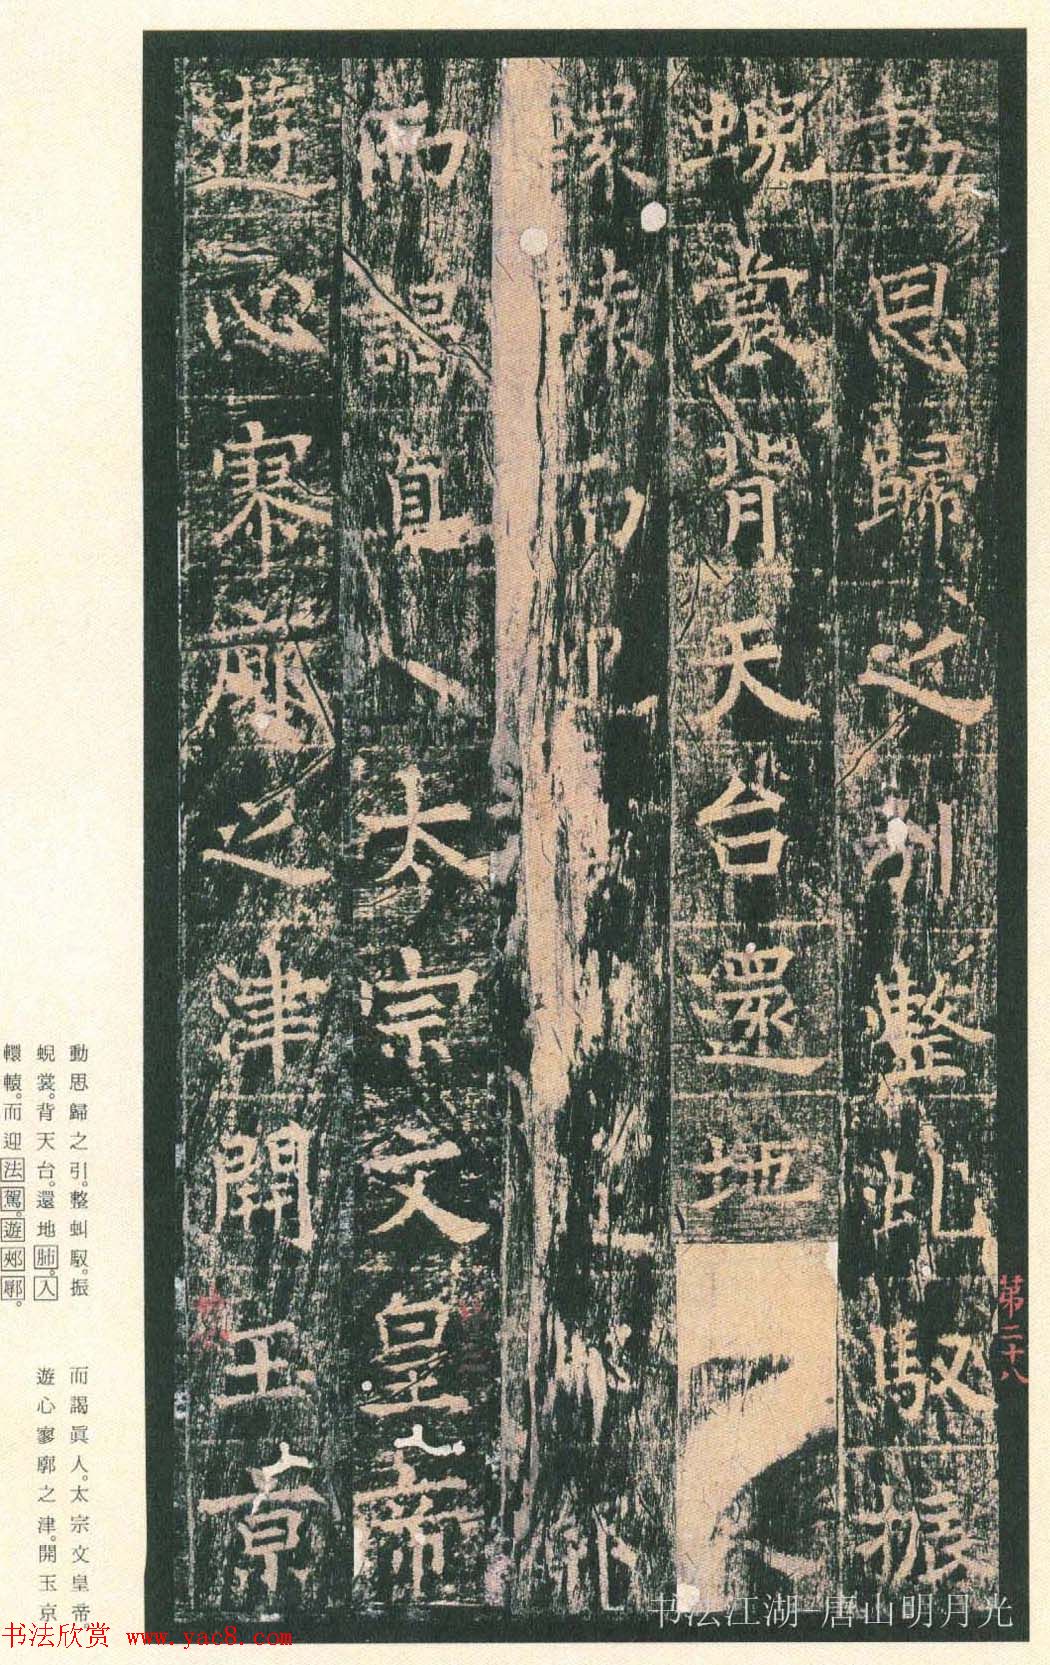 動思歸之引整虬馭振
蜺裳背天台還地
轅而迎
而謁真人太宗文皇帝
遊心寥廓之津開玉京
第二十八
動思歸之引。整虯馭。振
蜺裳。背天台。還地肺。入
轘轅。而迎法駕。遊郟鄏。
而謁眞人。太宗文皇帝。
遊心寥廓之津。開玉京
书法江湖-唐山明月光
书法欣赏 www.yac8.com